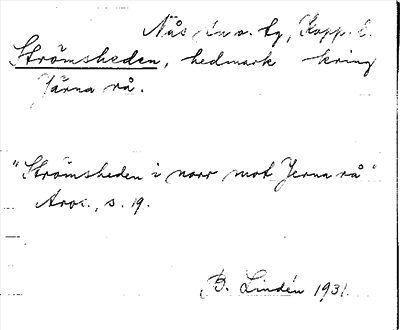 Näs sn o. by, Kopp. l.
Strömsheden, hedmark kring
Järna rå.
"Strömsheden i norr mot Jerna rå"
Avsr., s. 19.
B. Lindén 1931.